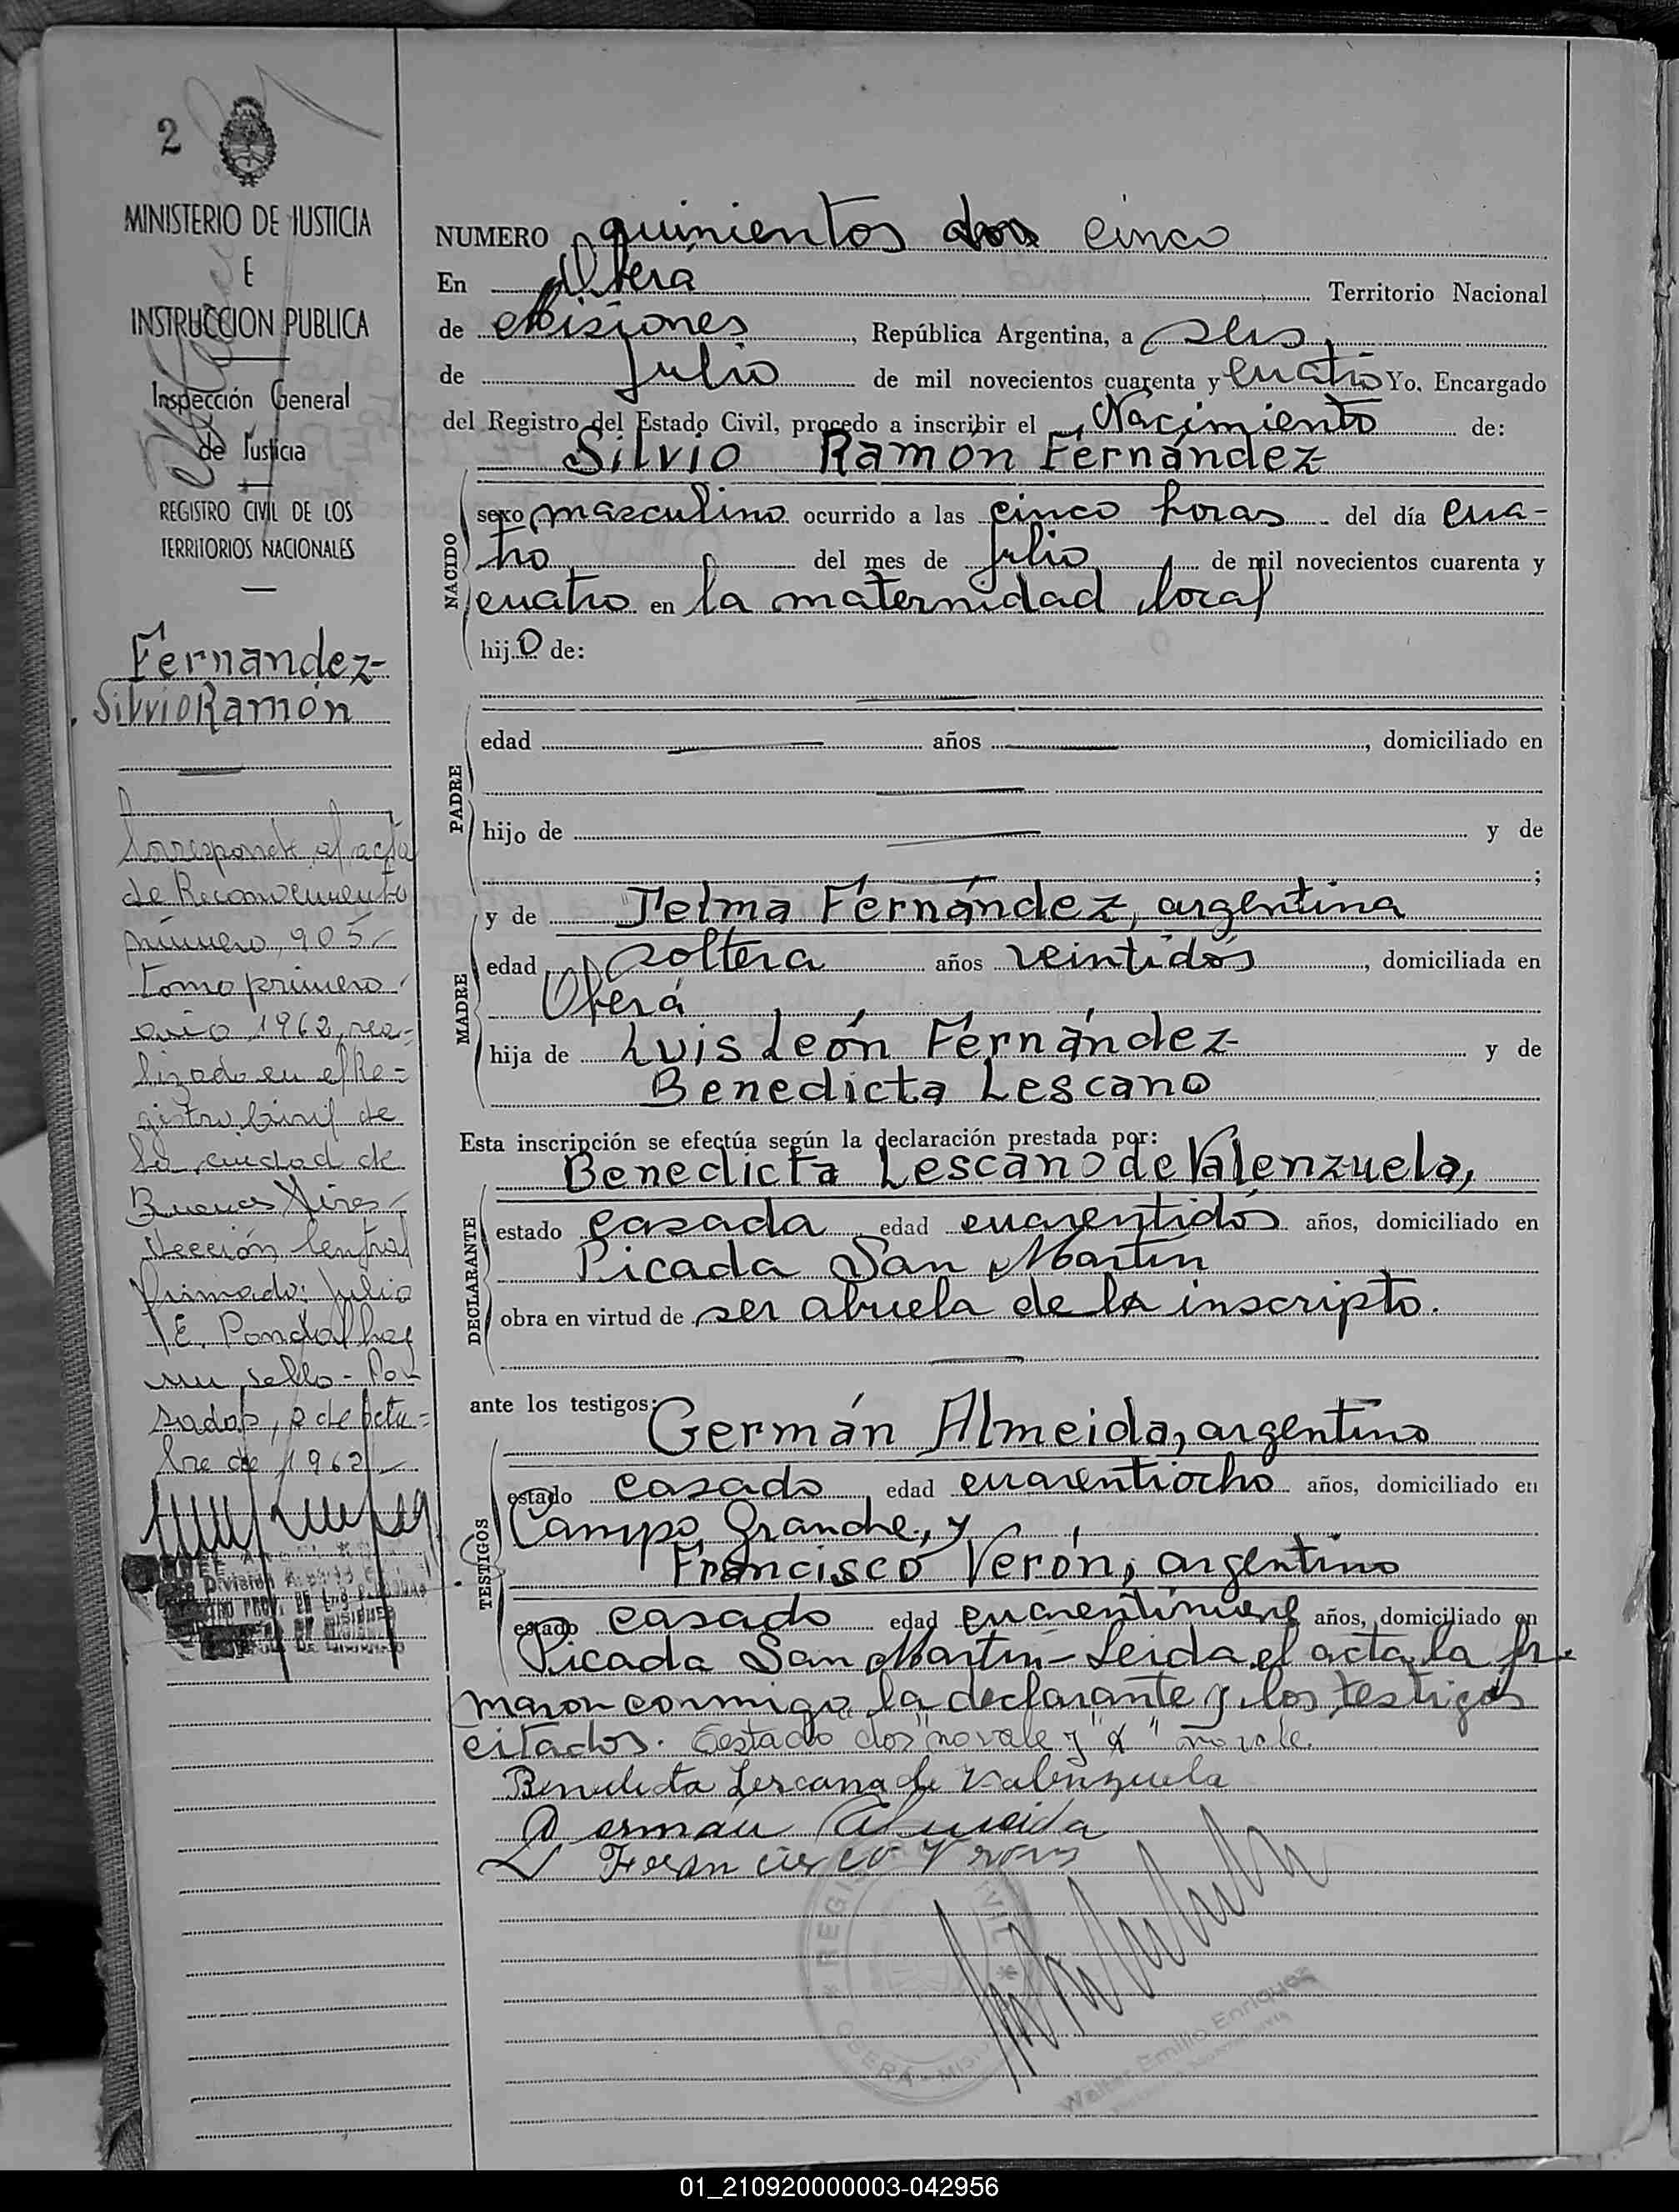 2
MINISTERIO DE JUSTICIA
E
INSTRUCCION PUBLICA
Inspección General
de Justicia
REGISTRO CIVIL DE LOS
TERRITORIOS NACIONALES
Fernandez
Silvio Ramón
Corresponde al acta
de Reconocimiento
número 905
tomo primero
año 1962, rea-
lizado en el Re-
gistro Civil de
la ciudad de
Buenos Aires
Sección Central
firmado: Julio
E. Pondal hay
un sello - Po
sadas, 2 de octu-
bre de 1962
NUMERO quinientos dos cinco
En Oberá Territorio Nacional
de Misiones, República Argentina, a seis
de Julio de mil novecientos cuarenta y cuatro Yo, Encargado
del Registro del Estado Civil, procedo a inscribir el Nacimiento de:
Silvio Ramón Fernández
NACIDO
sexo masculino ocurrido a las cinco horas del día cua-
tro del mes de julio de mil novecientos cuarenta y
cuatro en la maternidad local
hijo de:
PADRE
edad años, domiciliado en
hijo de y de
;
MADRE
y de Telma Fernández, argentina
edad soltera años veintidós, domiciliada en
Oberá
hija de Luis León Fernández y de
Benedicta Lescano
Esta inscripción se efectúa según la declaración prestada por:
Benedicta Lescano de Valenzuela,
DECLARANTE
estado casada edad cuarentidós años, domiciliado en
Picada San Martín
obra en virtud de ser abuela de la inscripto.
ante los testigos:
Germán Almeida, argentino
TESTIGOS
estado casado edad cuarentiocho años, domiciliado en
Campo Grande, y
Francisco Verón, argentino
estado casado edad cuarentinueve años, domiciliado en
Picada San Martín - Leida el acta la fir-
maron conmigo la declarante y los testigos
citados. Testado "dos" no vale y "a" no vale.
Benedicta Lescano de Valenzuela
German Almeida
Francisco Veron
REGIS CIVIL
OBERÁ - MIS
Walter Emilio Enriquez
01_210920000003-042956